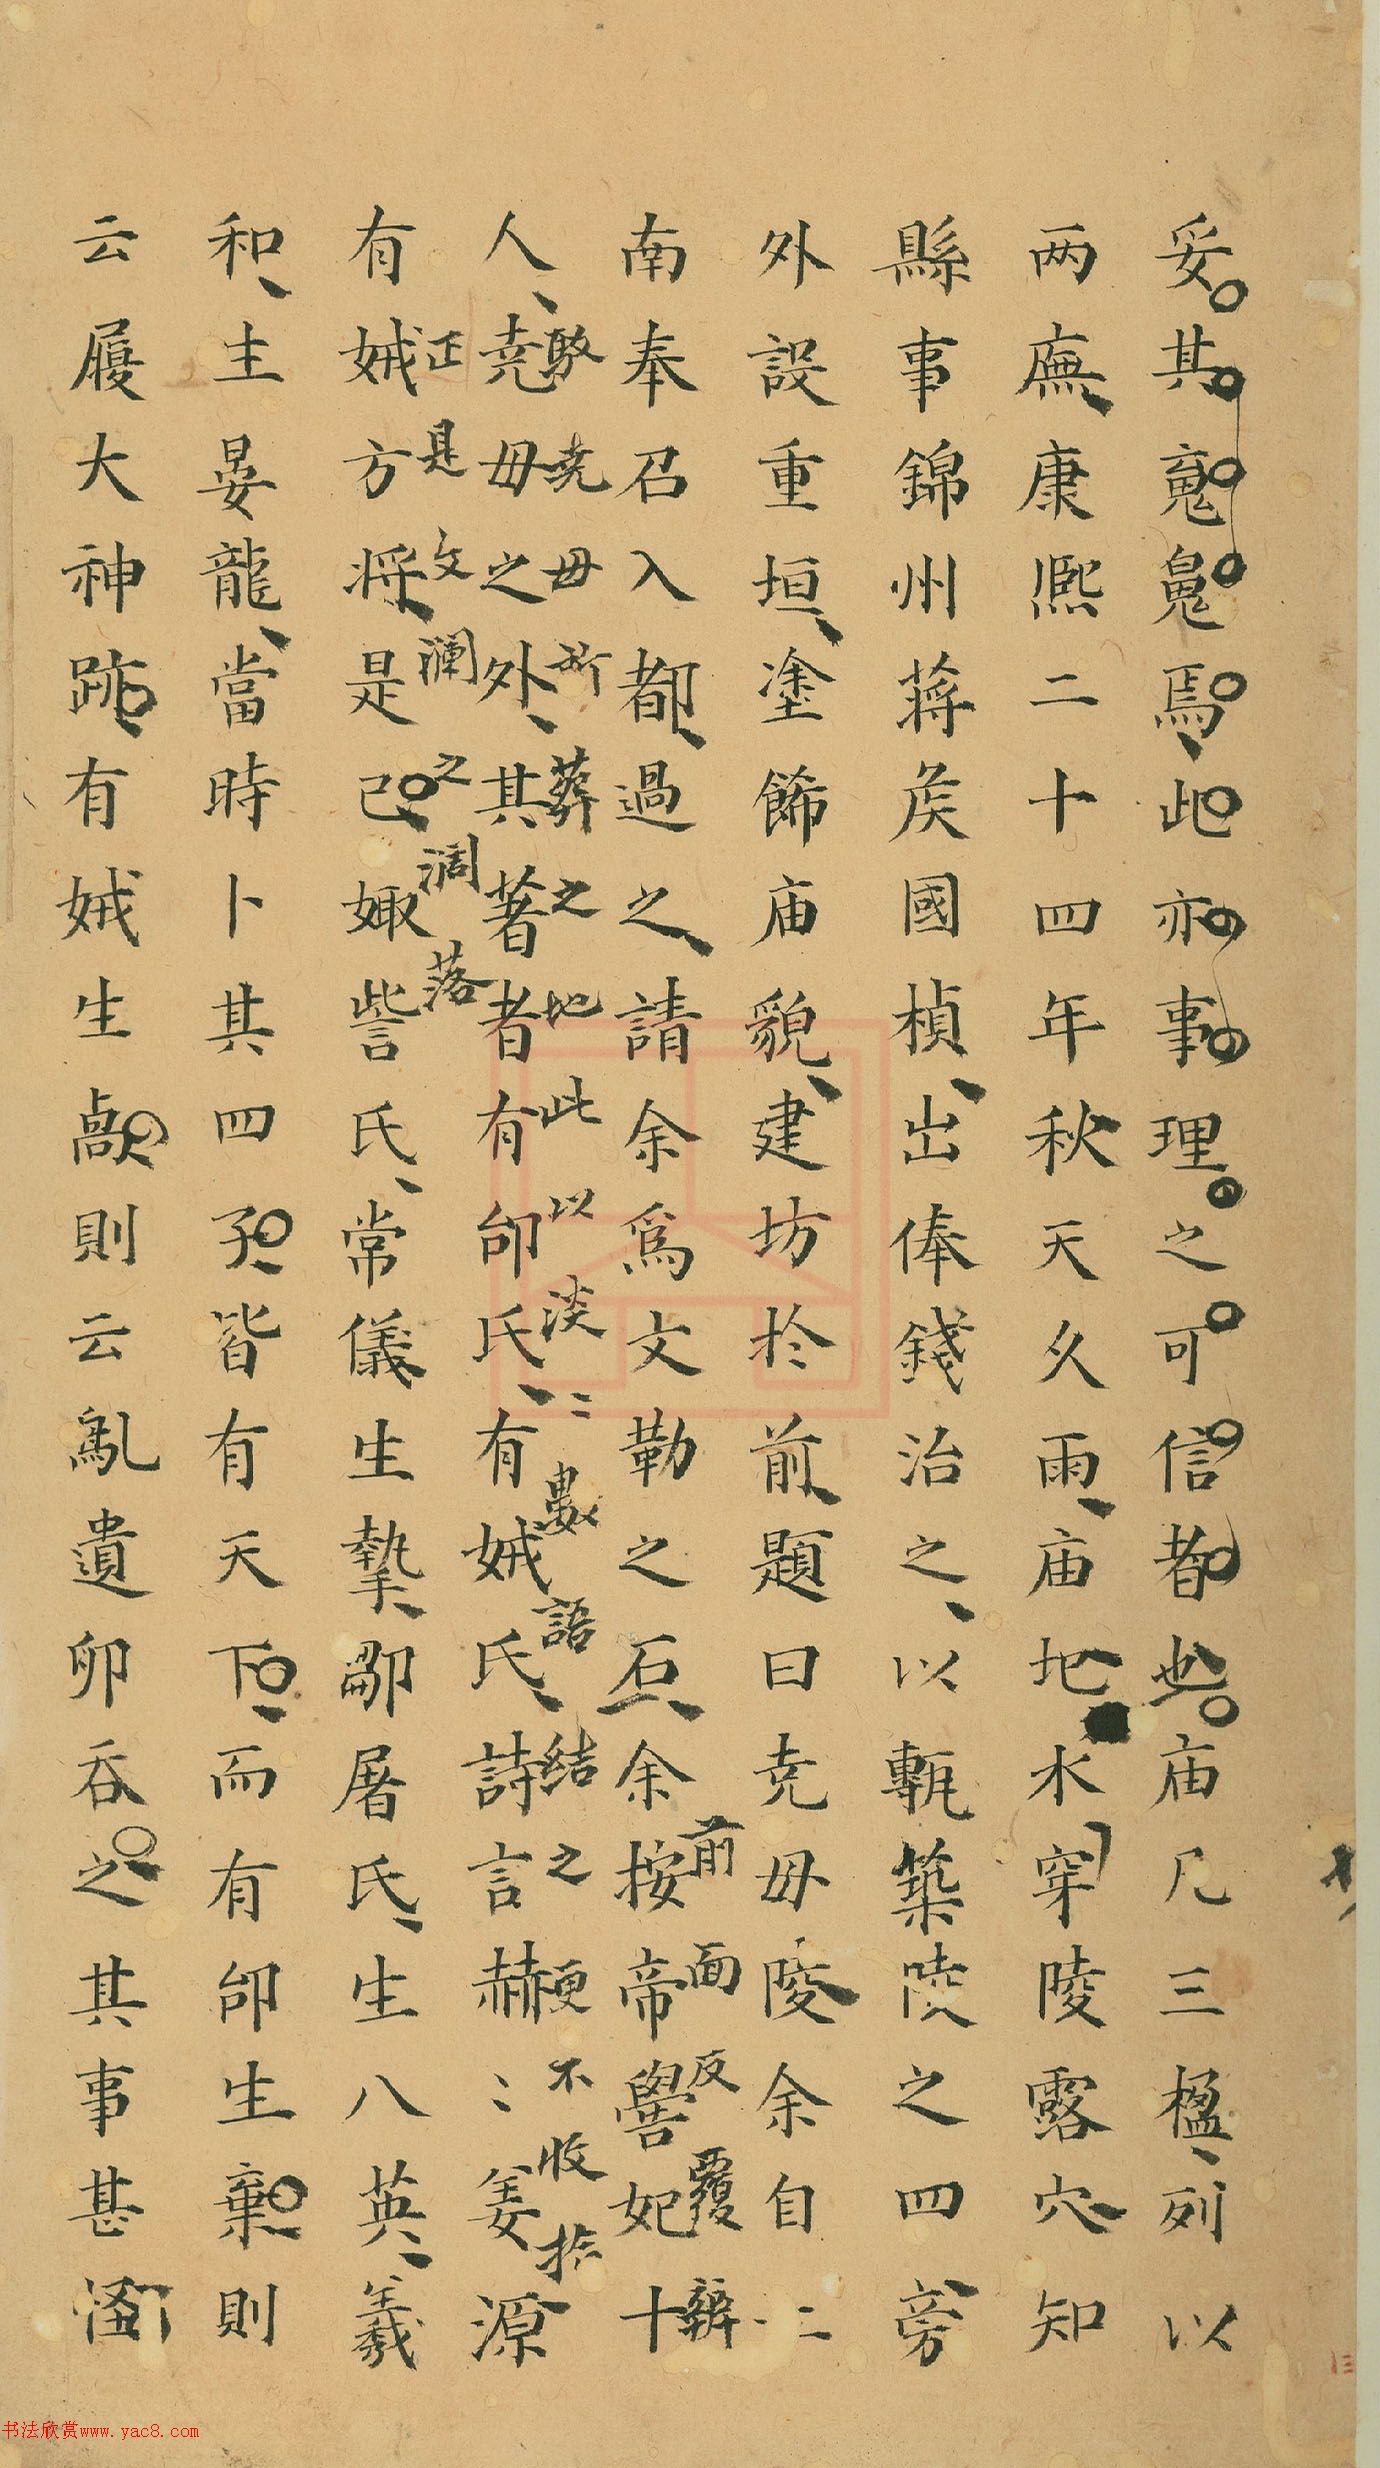 妥其䰟䰟焉此亦事理之可信者也庙凡三楹列以
两廡康熙二十四年秋天久雨庙圮水穿陵露穴知
縣事錦州蒋矦國楨出俸錢治之以甎築陵之四旁
外設重垣塗飾庙貌建坊扵前題曰尭毋陵余自二
南奉召入都過之請余爲文勒之石余按帝嚳妃十
前面反覆辨
人尭毋之外其著者有邰氏有娀氏詩言赫〻姜源
駮尭毋所葬之地此以淡〻數語結之更不收拾
有娀方将是已娵訾氏常儀生摯鄒屠氏生八英羲
正是文瀾之濶落
和生晏龍當時卜其四子皆有天下而有邰生棄則
云履大神跡有娀生卨則云鳦遺卵吞之其事甚怪
书法欣赏www.yac8.com